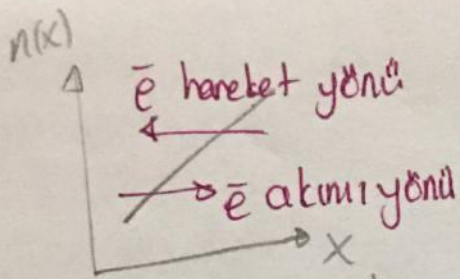 n(x)
ē hareket yönü
ē akımı yönü
x